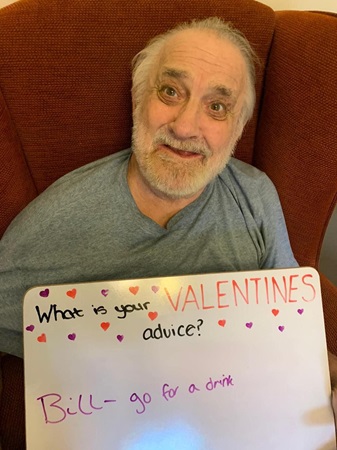 What is your VALENTINES
advice?
Bill- go for a drink